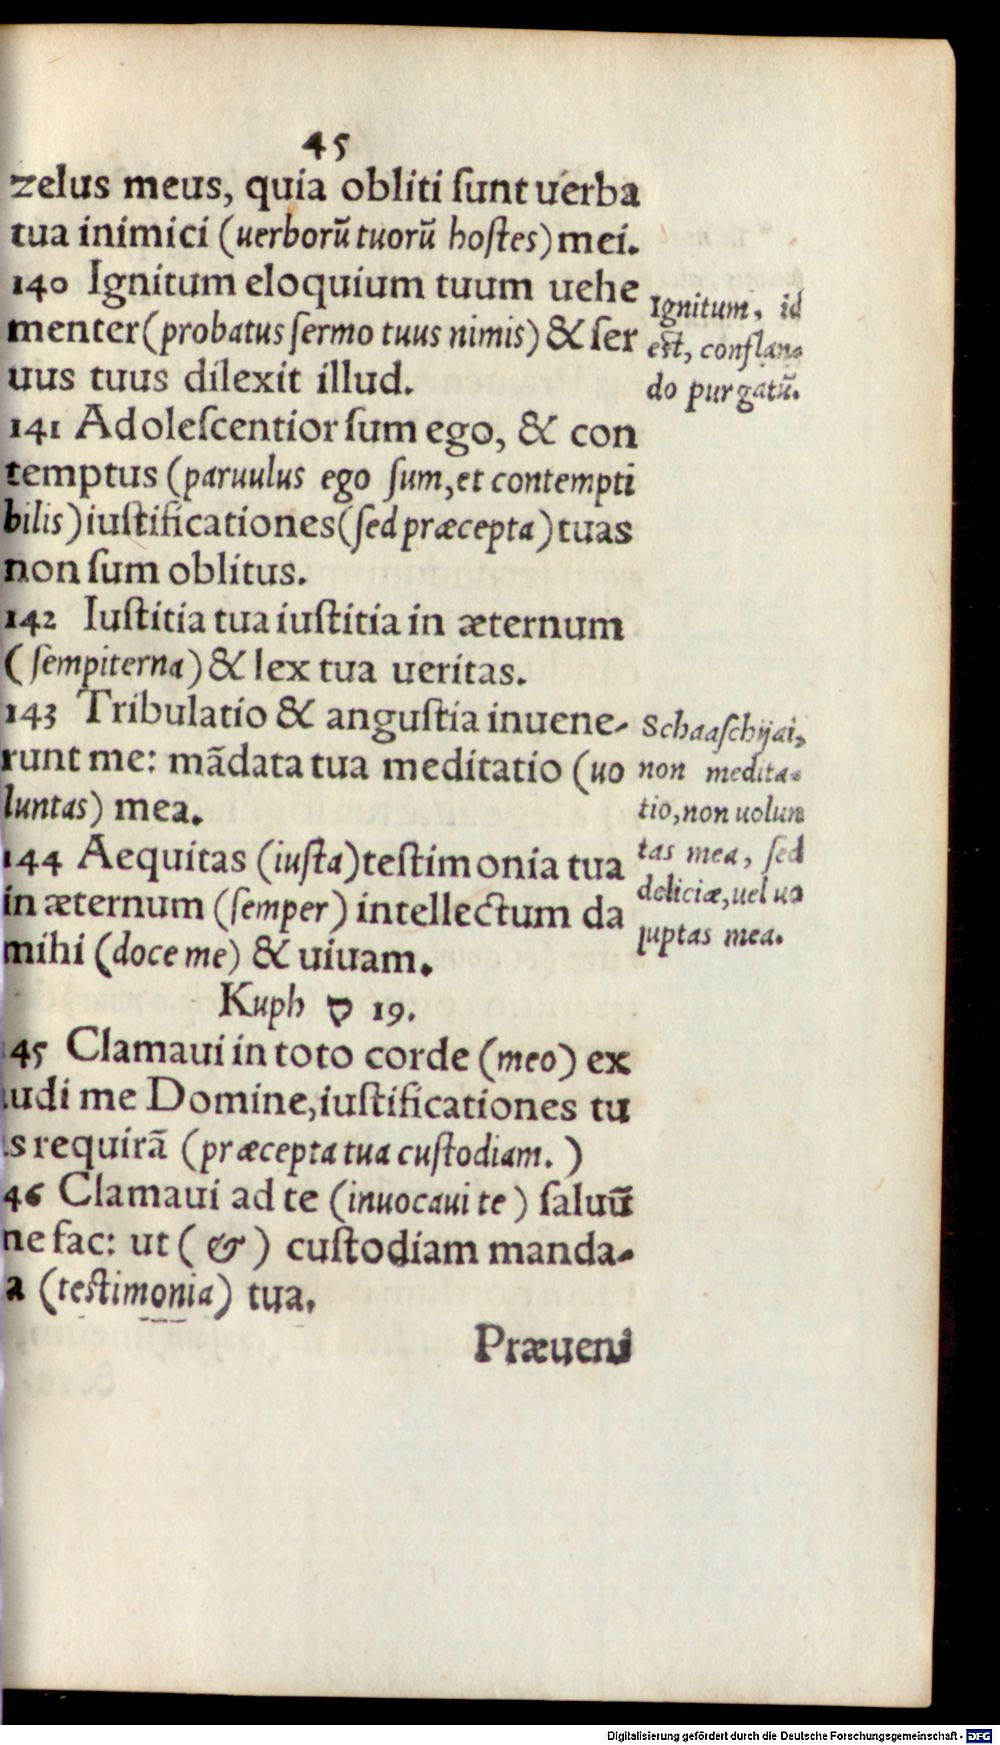 45
zelus meus, quia obliti ſunt uerba
tua inimici (uerborũ tuorũ hoſtes) mei.
140 Ignitum eloquium tuum uehe
menter (probatus ſermo tuus nimis) & ſer
uus tuus dilexit illud.
Ignitum, id
eſt, conflan-
do purgatũ.
141 Adoleſcentior ſum ego, & con
temptus (paruulus ego ſum, et contempti
bilis) iuſtificationes (ſed præcepta) tuas
non ſum oblitus.
142 Iuſtitia tua iuſtitia in æternum
(ſempiterna) & lex tua ueritas.
143 Tribulatio & anguſtia inuene-
runt me: mãdata tua meditatio (uo
luntas) mea.
Schaaſchijai,
non medita-
tio, non uolun
tas mea, ſed
deliciæ, uel uo
luptas mea.
144 Aequitas (iuſta) teſtimonia tua
in æternum (ſemper) intellectum da
mihi (doce me) & uiuam.
Kuph ק 19.
45 Clamaui in toto corde (meo) ex
udi me Domine, iuſtificationes tu
s requirã (præcepta tua cuſtodiam.)
46 Clamaui ad te (inuocaui te) ſaluũ
ne fac: ut (&) cuſtodiam manda-
a (teſtimonia) tua.
Præueni
Digitalisierung gefördert durch die Deutsche Forschungsgemeinschaft - DFG